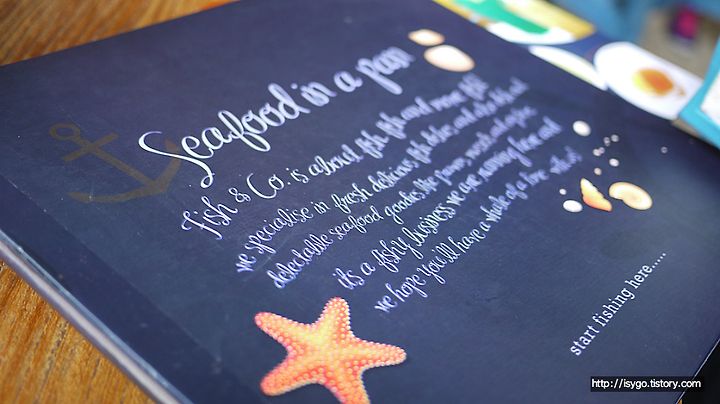 Seafood in a pan
Fish & Co. is about fish, fish and more fish!
we specialise in fresh delicious fish dishes, and also
delectable seafood goodies like prawns, mussels and
it's a fishy business we are running here and
we hope you'll have a whale of a time with us!
start fishing here.....
http://isygo.tistory.com